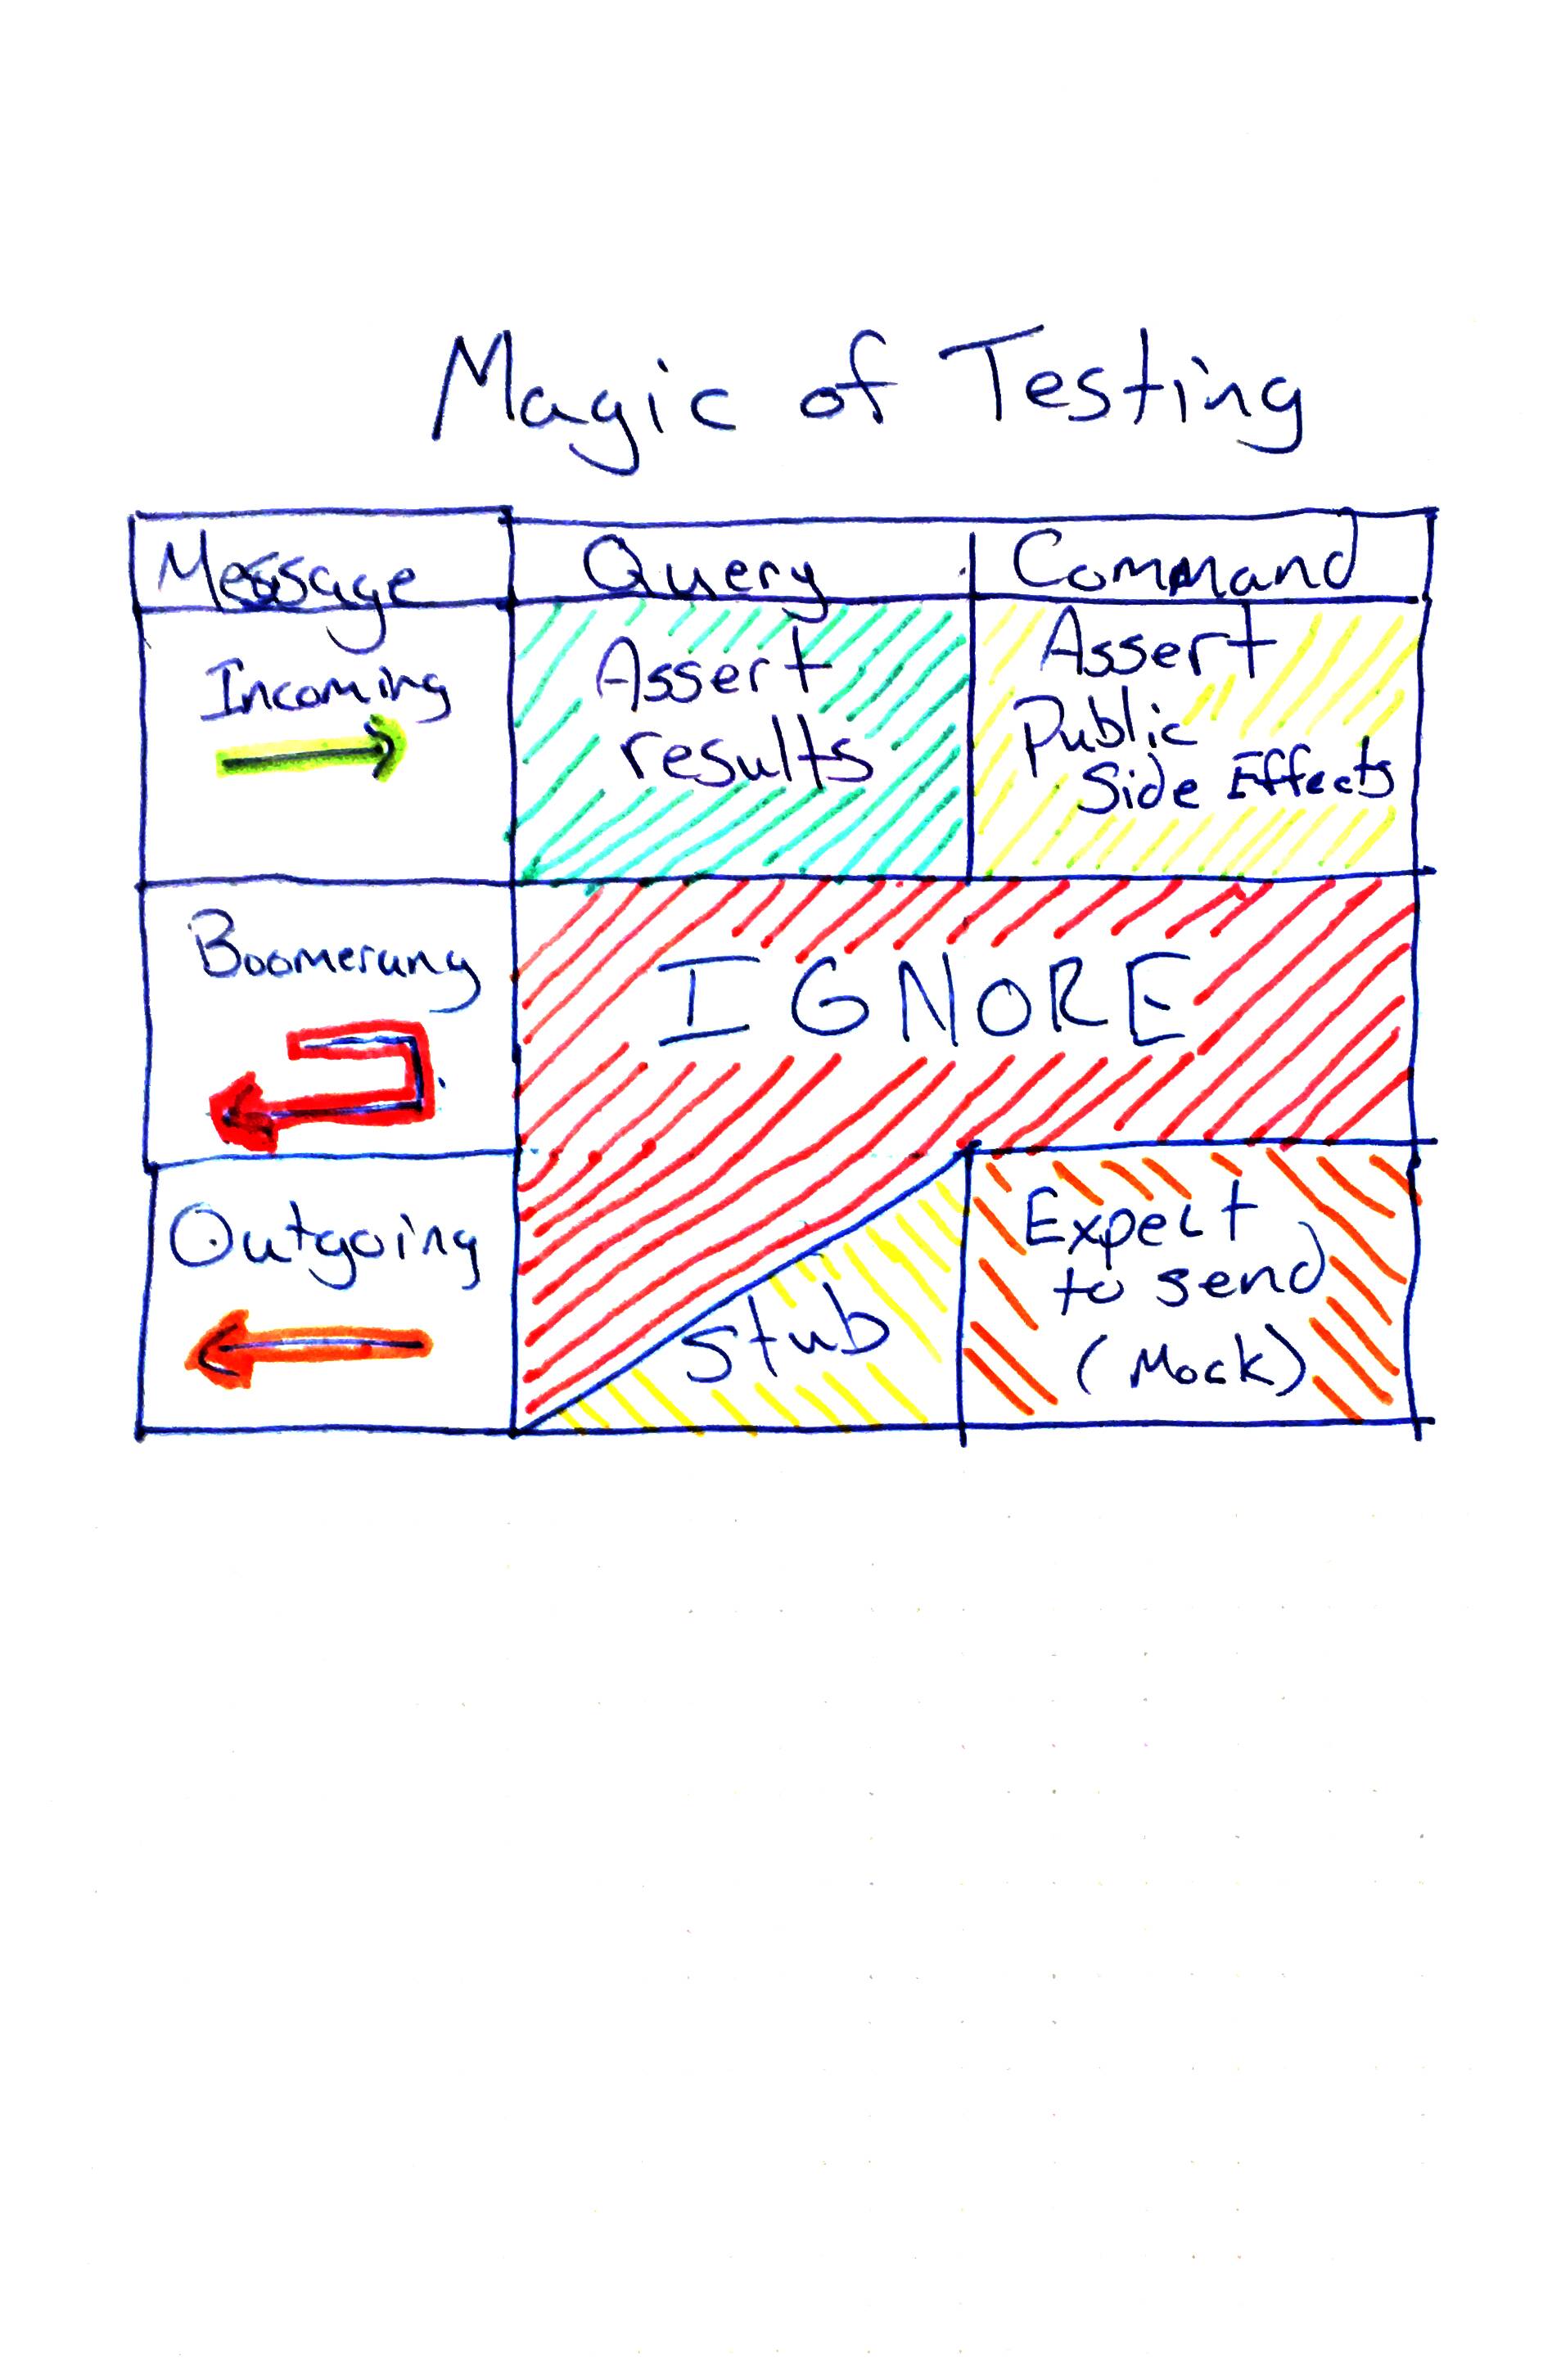 Magic of Testing
Message Query Command
Incoming
Assert
results
Assert
Public
Side Effects
Boomerang
IGNORE
Outgoing
Stub
Expect
to send
(Mock)